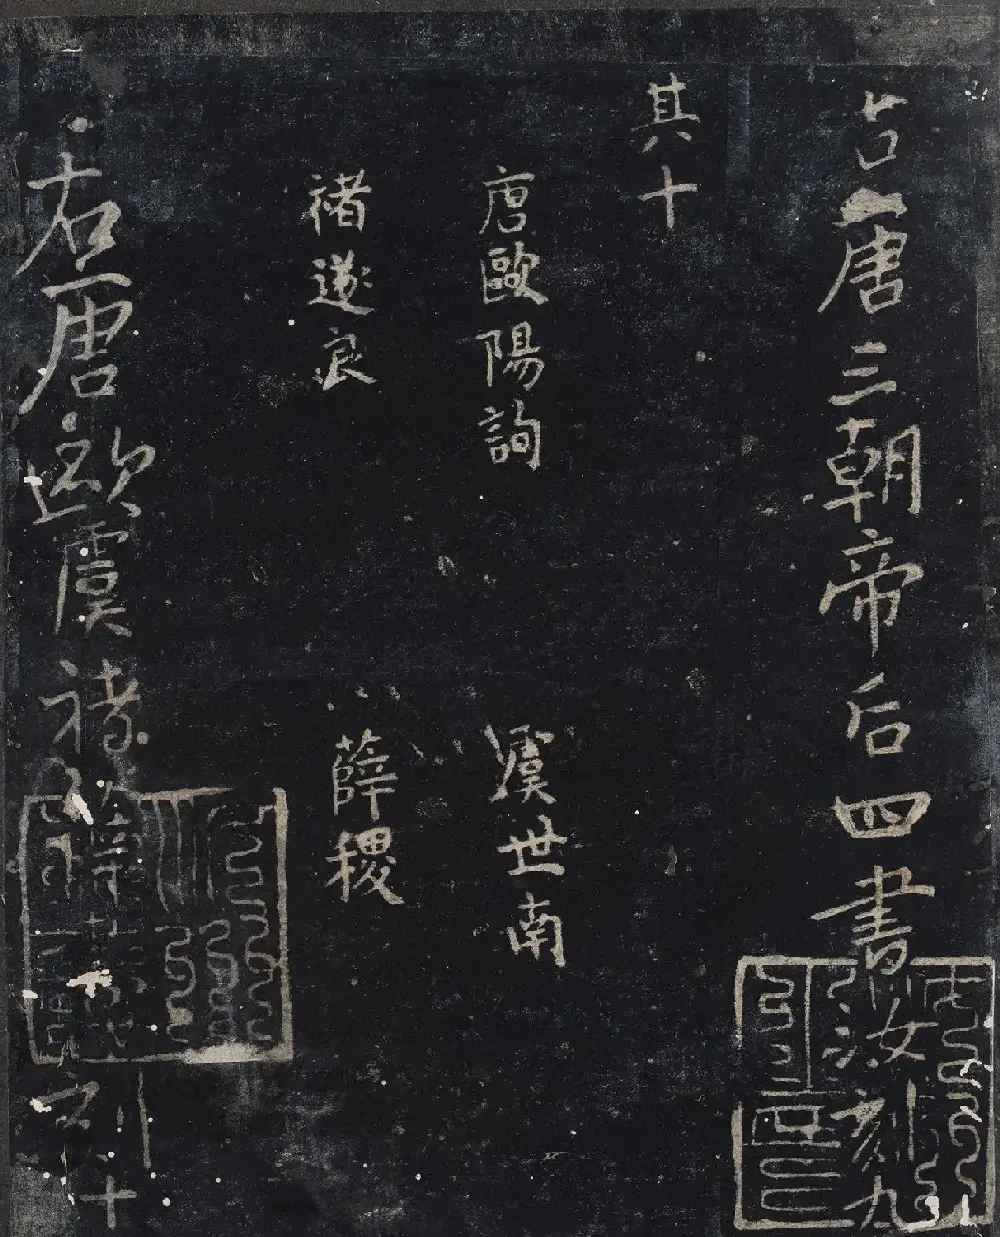 右唐三朝帝后四書汝刻九
其十
唐歐陽詢 虞世南
褚遂良 薛稷
右唐歐虞褚薛 刻十